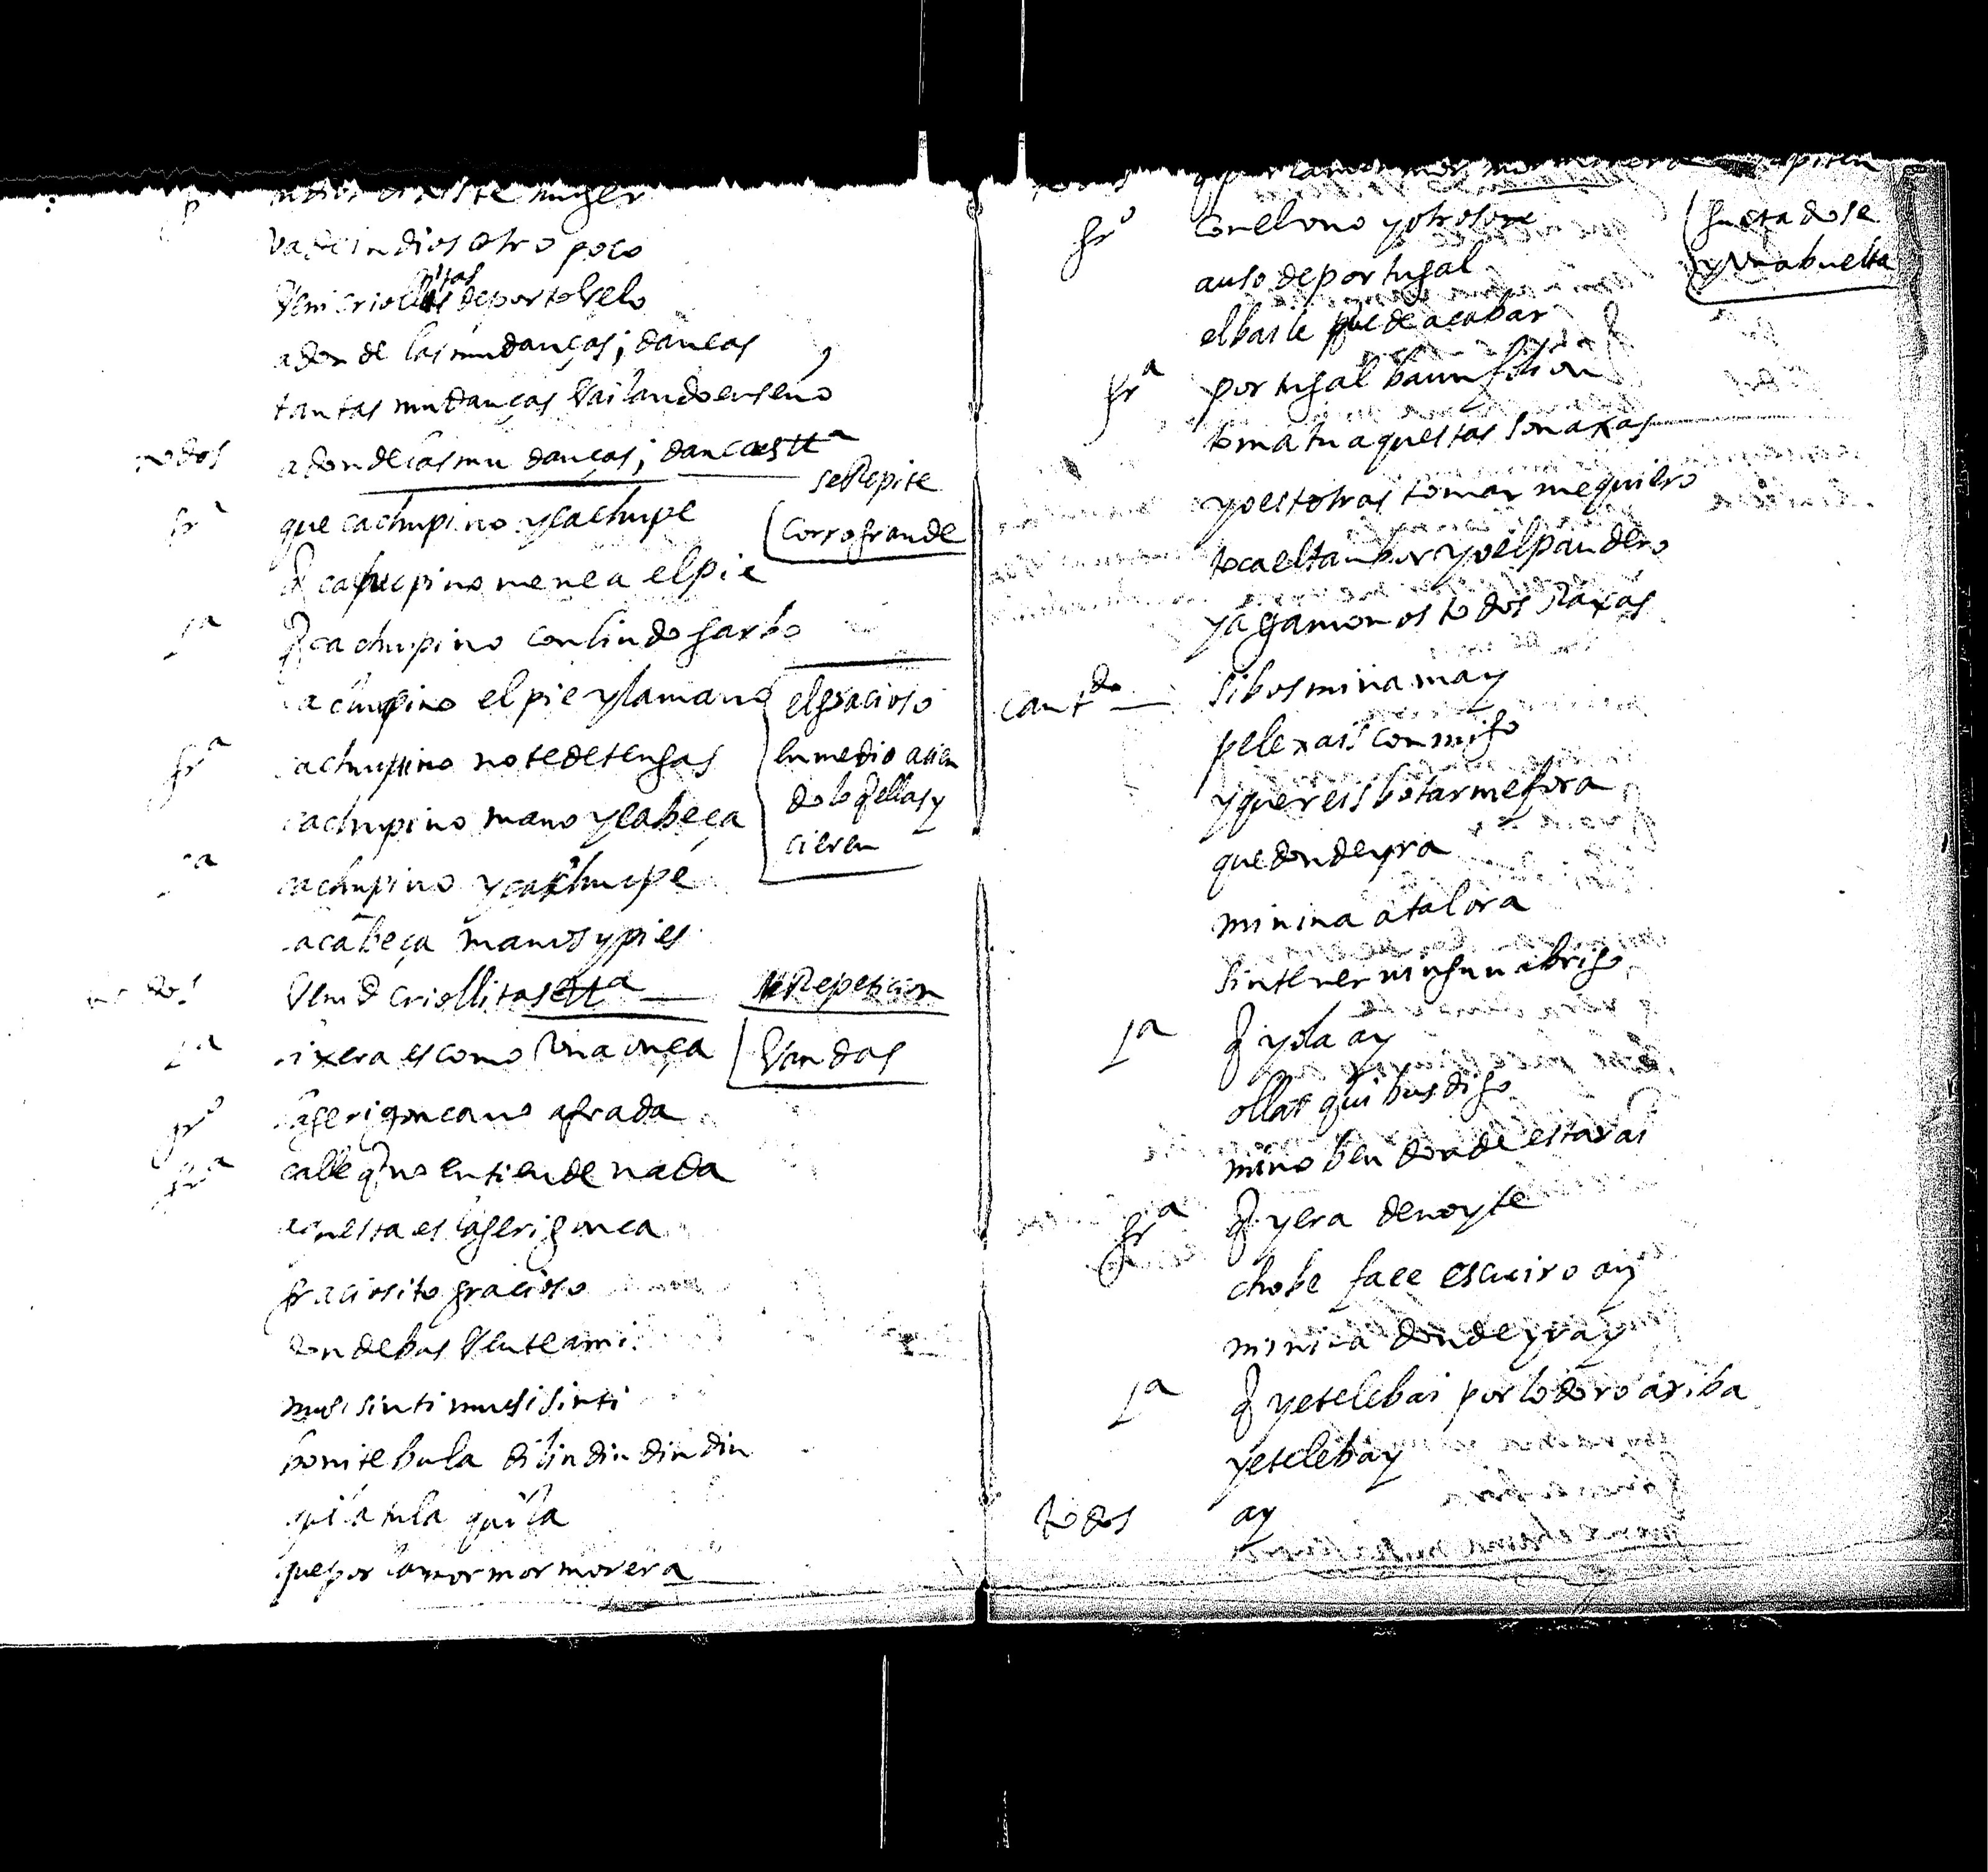 muger
vascindios otro poco
Veni criollitas deportobelo
adon de las mudanças; danças
tantas mudanças Vailandoenseño
todos adondelasmu danças; dancasetta
seRepite
grª que cachupino ycachupe
corro grande
q cachupino menea elpie
1ª q cachupino conlindo garbo
cachupino elpie ylamano
elgracioso
enmedio acien
do lo q ellas y
cieren
grª cachupino notedetengas
cachupino mano ycabeça
1ª cachupino ycachupe
lacabeça manos ypies
todos Venid criollitasettª
Repeticion
1ª lixera escomo Vna onça
Vandas
gro lagerigonca no agrada
grª calle q no entiende nada
aquesta es lagerigonca
graciosito gracioso
dondebas Venteami
musisinti musisinti
bonite bula dilin din din din
quila tula quila
quepor lamormormorera
gro conelvno yotrosone
gueta dose
y Vnabuelta
auso deportugal
elbaile puede acabar
grª portugal
toma tu aquestas sonaxas
yoestotras tomar mequiero
tocaeltambor yoelpandero
yagamonos todos Raxas
cantdo sibosmiña may
pelexais conmigo
yquereis botarmefora
quedondeyra
minina atalora
sintener ningun abrigo
1ª q yola ay
ollai quibusdigo
mino ben donde estarai
grª q yera denoyte
chobe face escuiro ay
minina dondeyray
1ª q yetelebai por lodoro ariba
yetelebay
todos ay